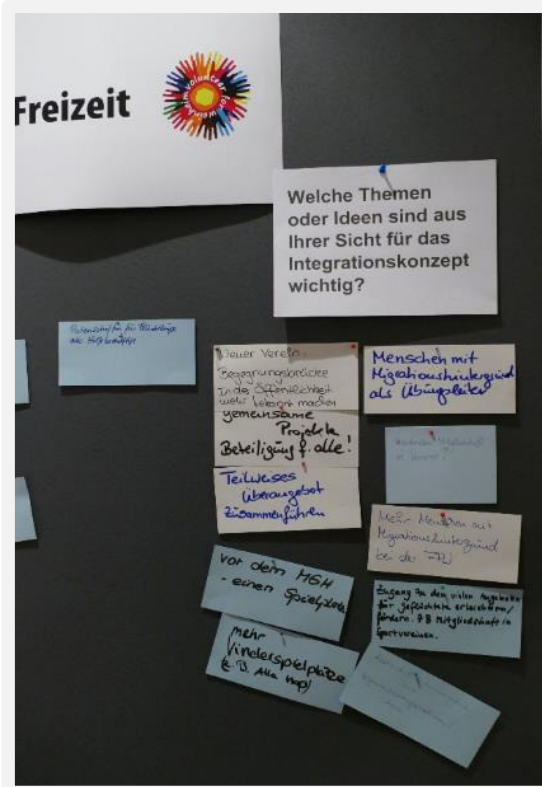 Freizeit
volunteer for weinheim
Welche Themen
oder Ideen sind aus
Ihrer Sicht für das
Integrationskonzept
wichtig?
für Flüchtlinge
Neuer Verein
Begegnungsbrücke
In der Öffentlichkeit
mehr bekannt machen
gemeinsame
Projekte
Beteiligung f. alle!
Teilweises
Überangebot
zusammenführen
Menschen mit
Migrationshintergrund
als Übungsleiter
Mehr Menschen mit
Migrationshintergrund
bei der FFW
vor dem MGH
- einen Spielplatz
mehr
Kinderspielplätze
(z.B. Alla hop)
Zugang zu den vielen Angeboten
für geflüchtete erleichtern/
fördern. z B Mitgliedschaft in
Sportvereinen.